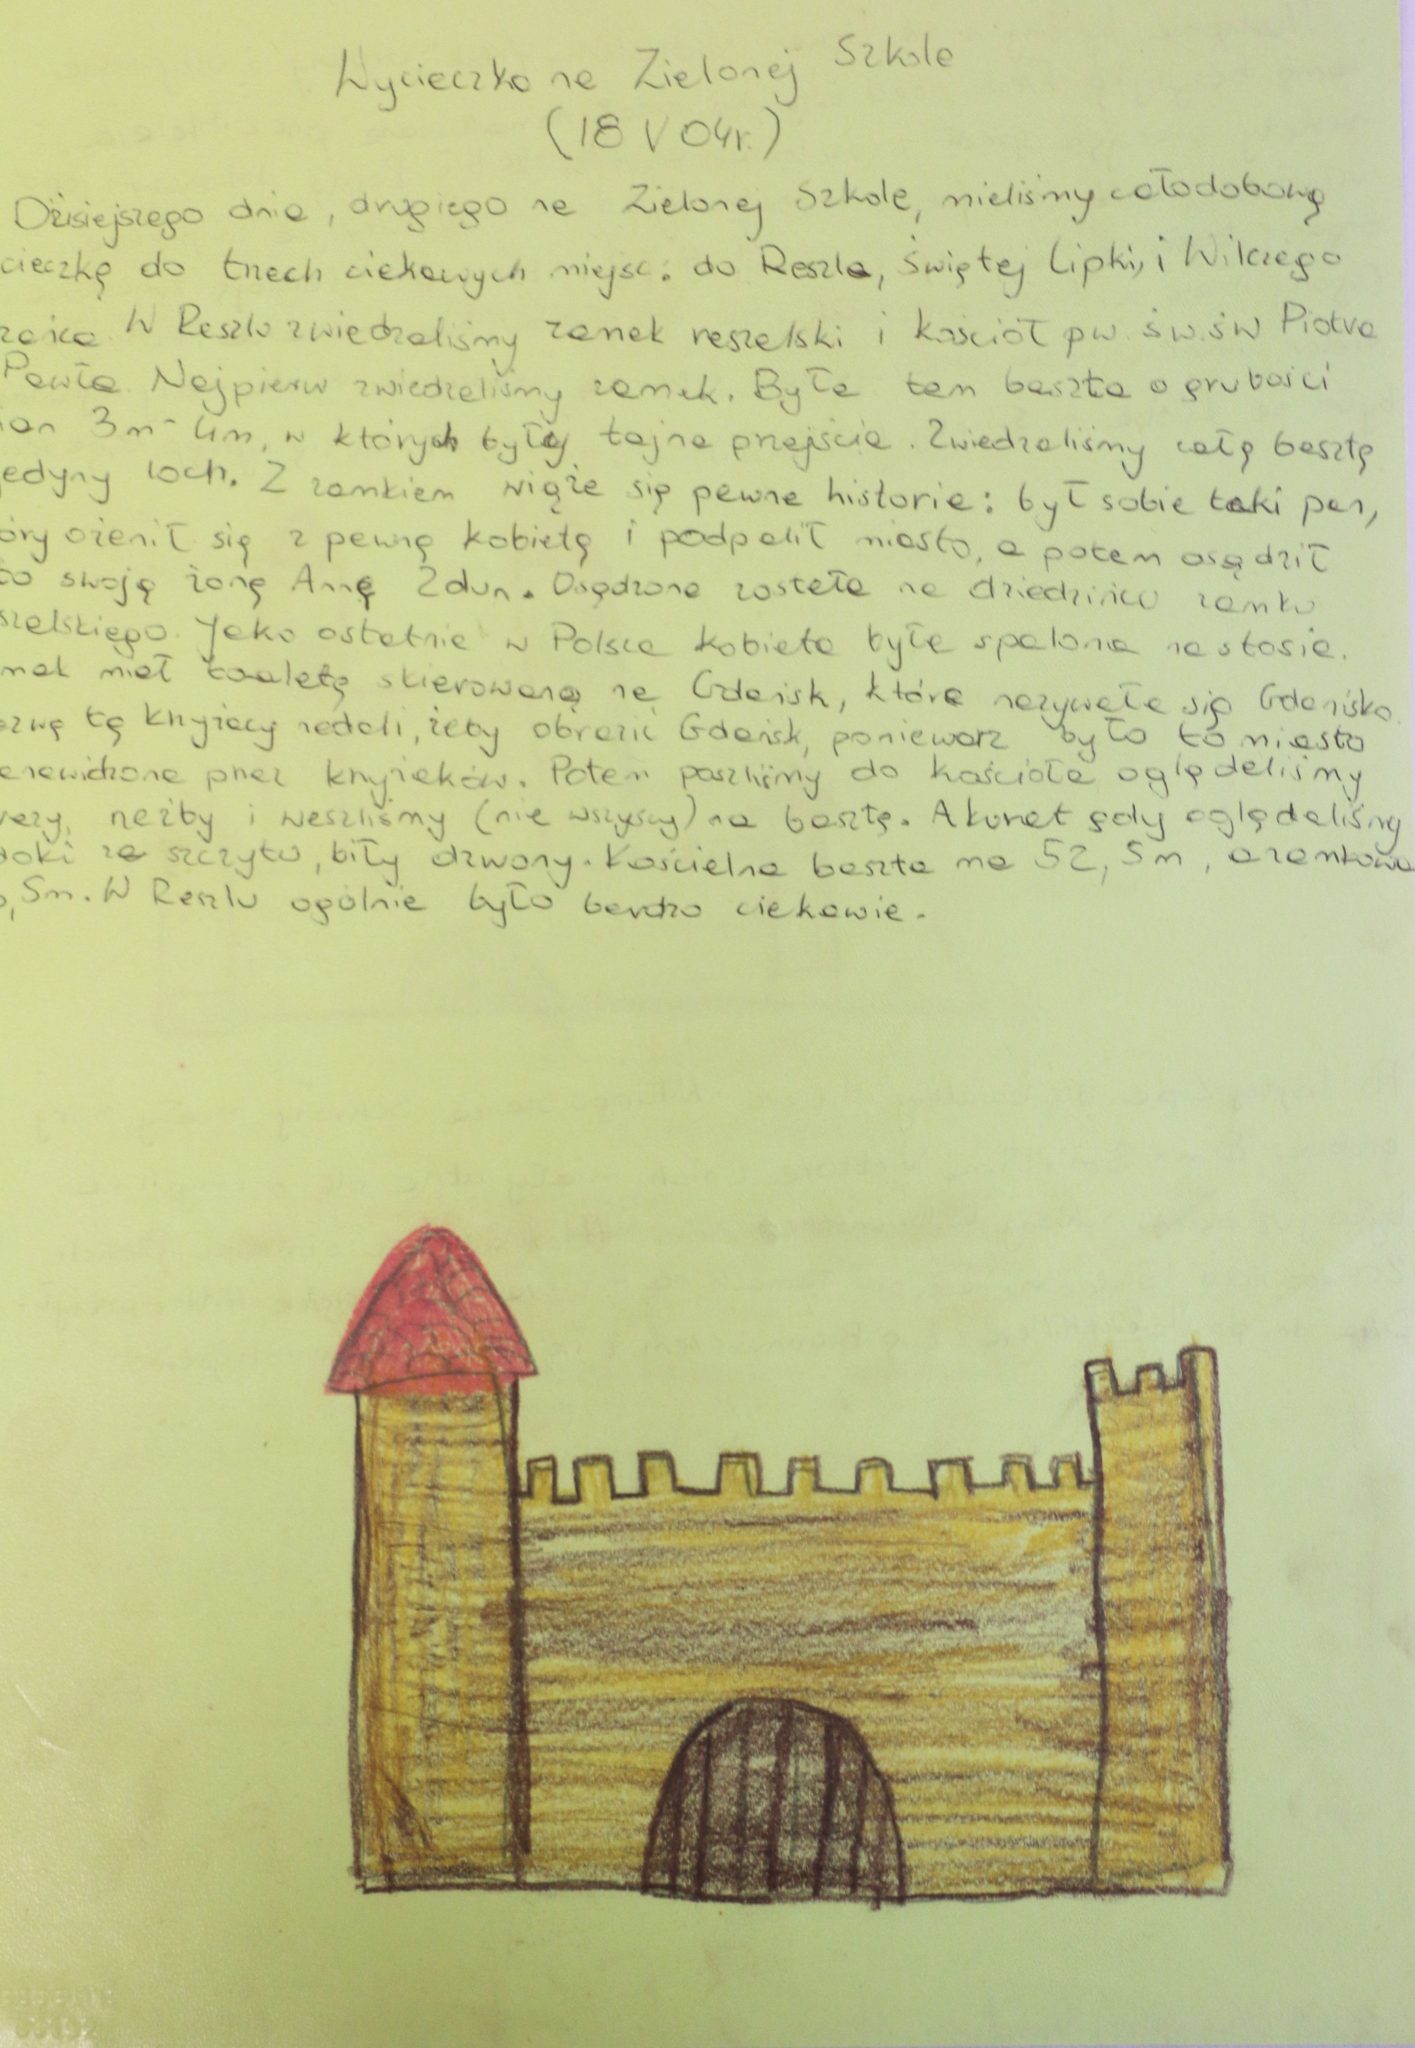 Wycieczka na Zielonej Szkole
(18 V 04r.)
Dzisiejszego dnia, drugiego na Zielonej Szkole, mieliśmy całodobową
cieczkę do trzech ciekawych miejsc: do Reszla, Świętej Lipki, i Wilczego
zańca. W Reszlu zwiedzaliśmy zamek reszelski i kościół pw. św.św Piotra
Pawła. Najpierw zwiedzaliśmy zamek. Była tam baszta o grubości
ian 3m-4m, w których były tajne przejścia. Zwiedzaliśmy całą basztę
jedyny loch. Z zamkiem wiąże się pewna historia: był sobie taki pan,
óry ożenił się z pewną kobietą i podpalił miasto, a potem osądził
to swoją żonę Annę Zdun. Osądzona została na dziedzińcu zamku
szelskiego. Jako ostatnia w Polsce kobieta była spalona na stosie.
mek miał toaletę skierowaną na Gdańsk, która nazywała się Gdańsko.
azwę tę knyżacy nadali, żeby obrazić Gdańsk, poniewarz było to miasto
enawidzone przez knyżaków. Potem poszliśmy do kościoła oglądaliśmy
rzeźby i weszliśmy (nie wszyscy) na basztę. Akurat gdy oglądaliśmy
doki ze szczytu, biły dzwony. Kościelna baszta ma 52,5m, a zamkowa
,5m. W Reszlu ogólnie było bardzo ciekawie.